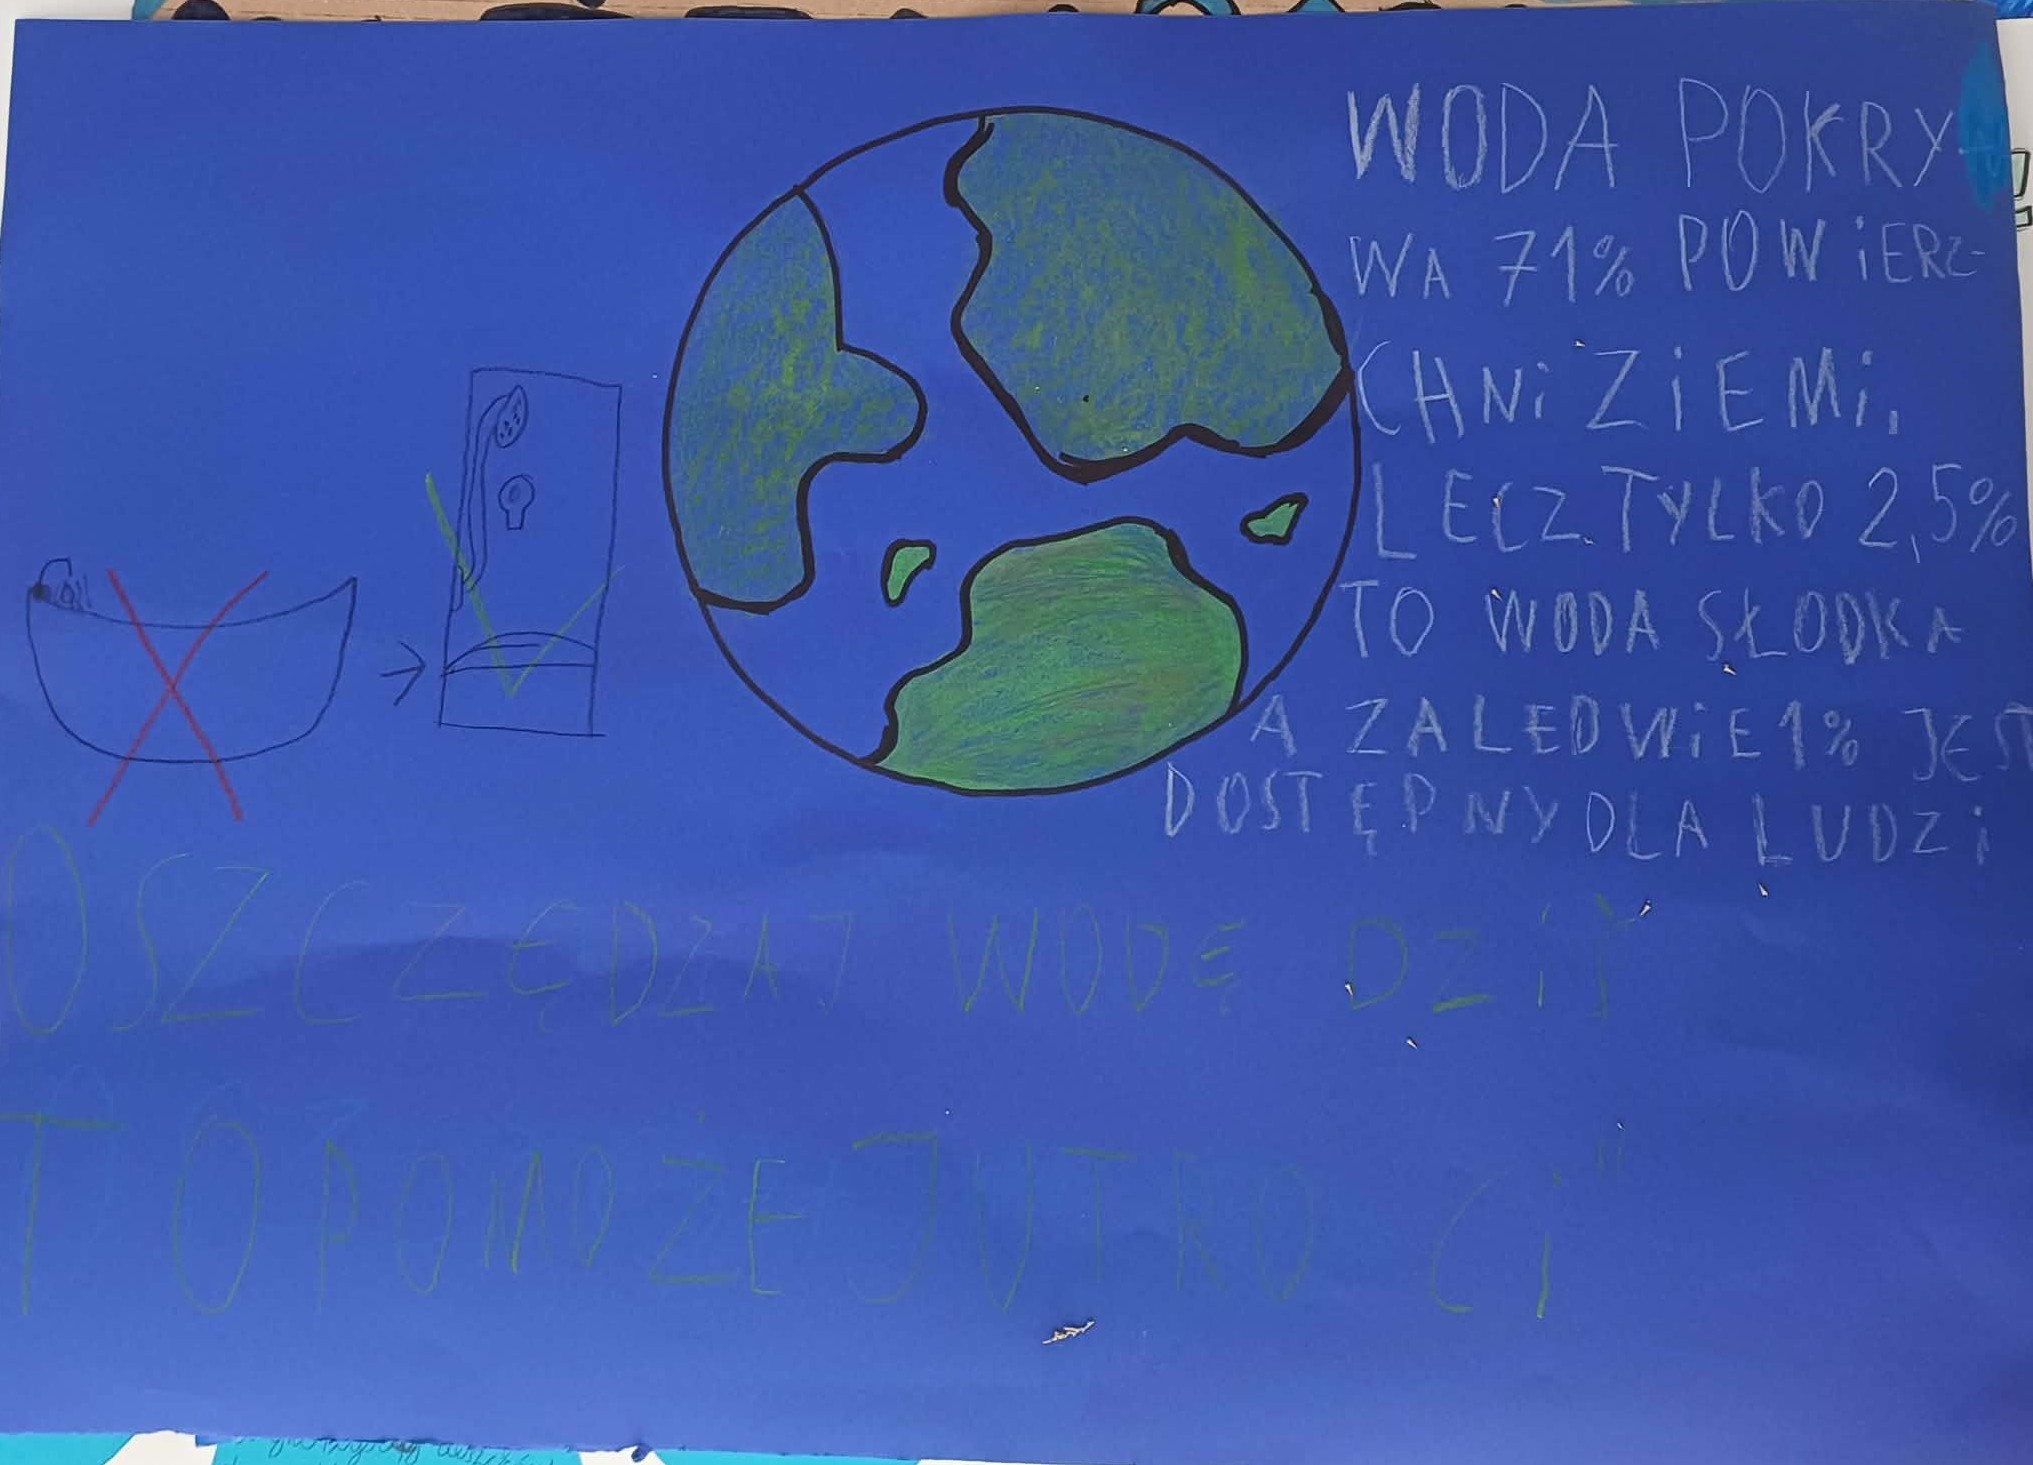 WODA POKRY-
WA 71% POWiERZ-
CHNi ZiEMi,
LECZ TYLKO 2,5%
TO WODA SŁODKA
A ZALEDWiE 1% JEST
DOSTĘPNY DLA LUDZi
OSZCZĘDZAJ WODĘ DZiŚ
TO POMOŻE JUTRO Ci"